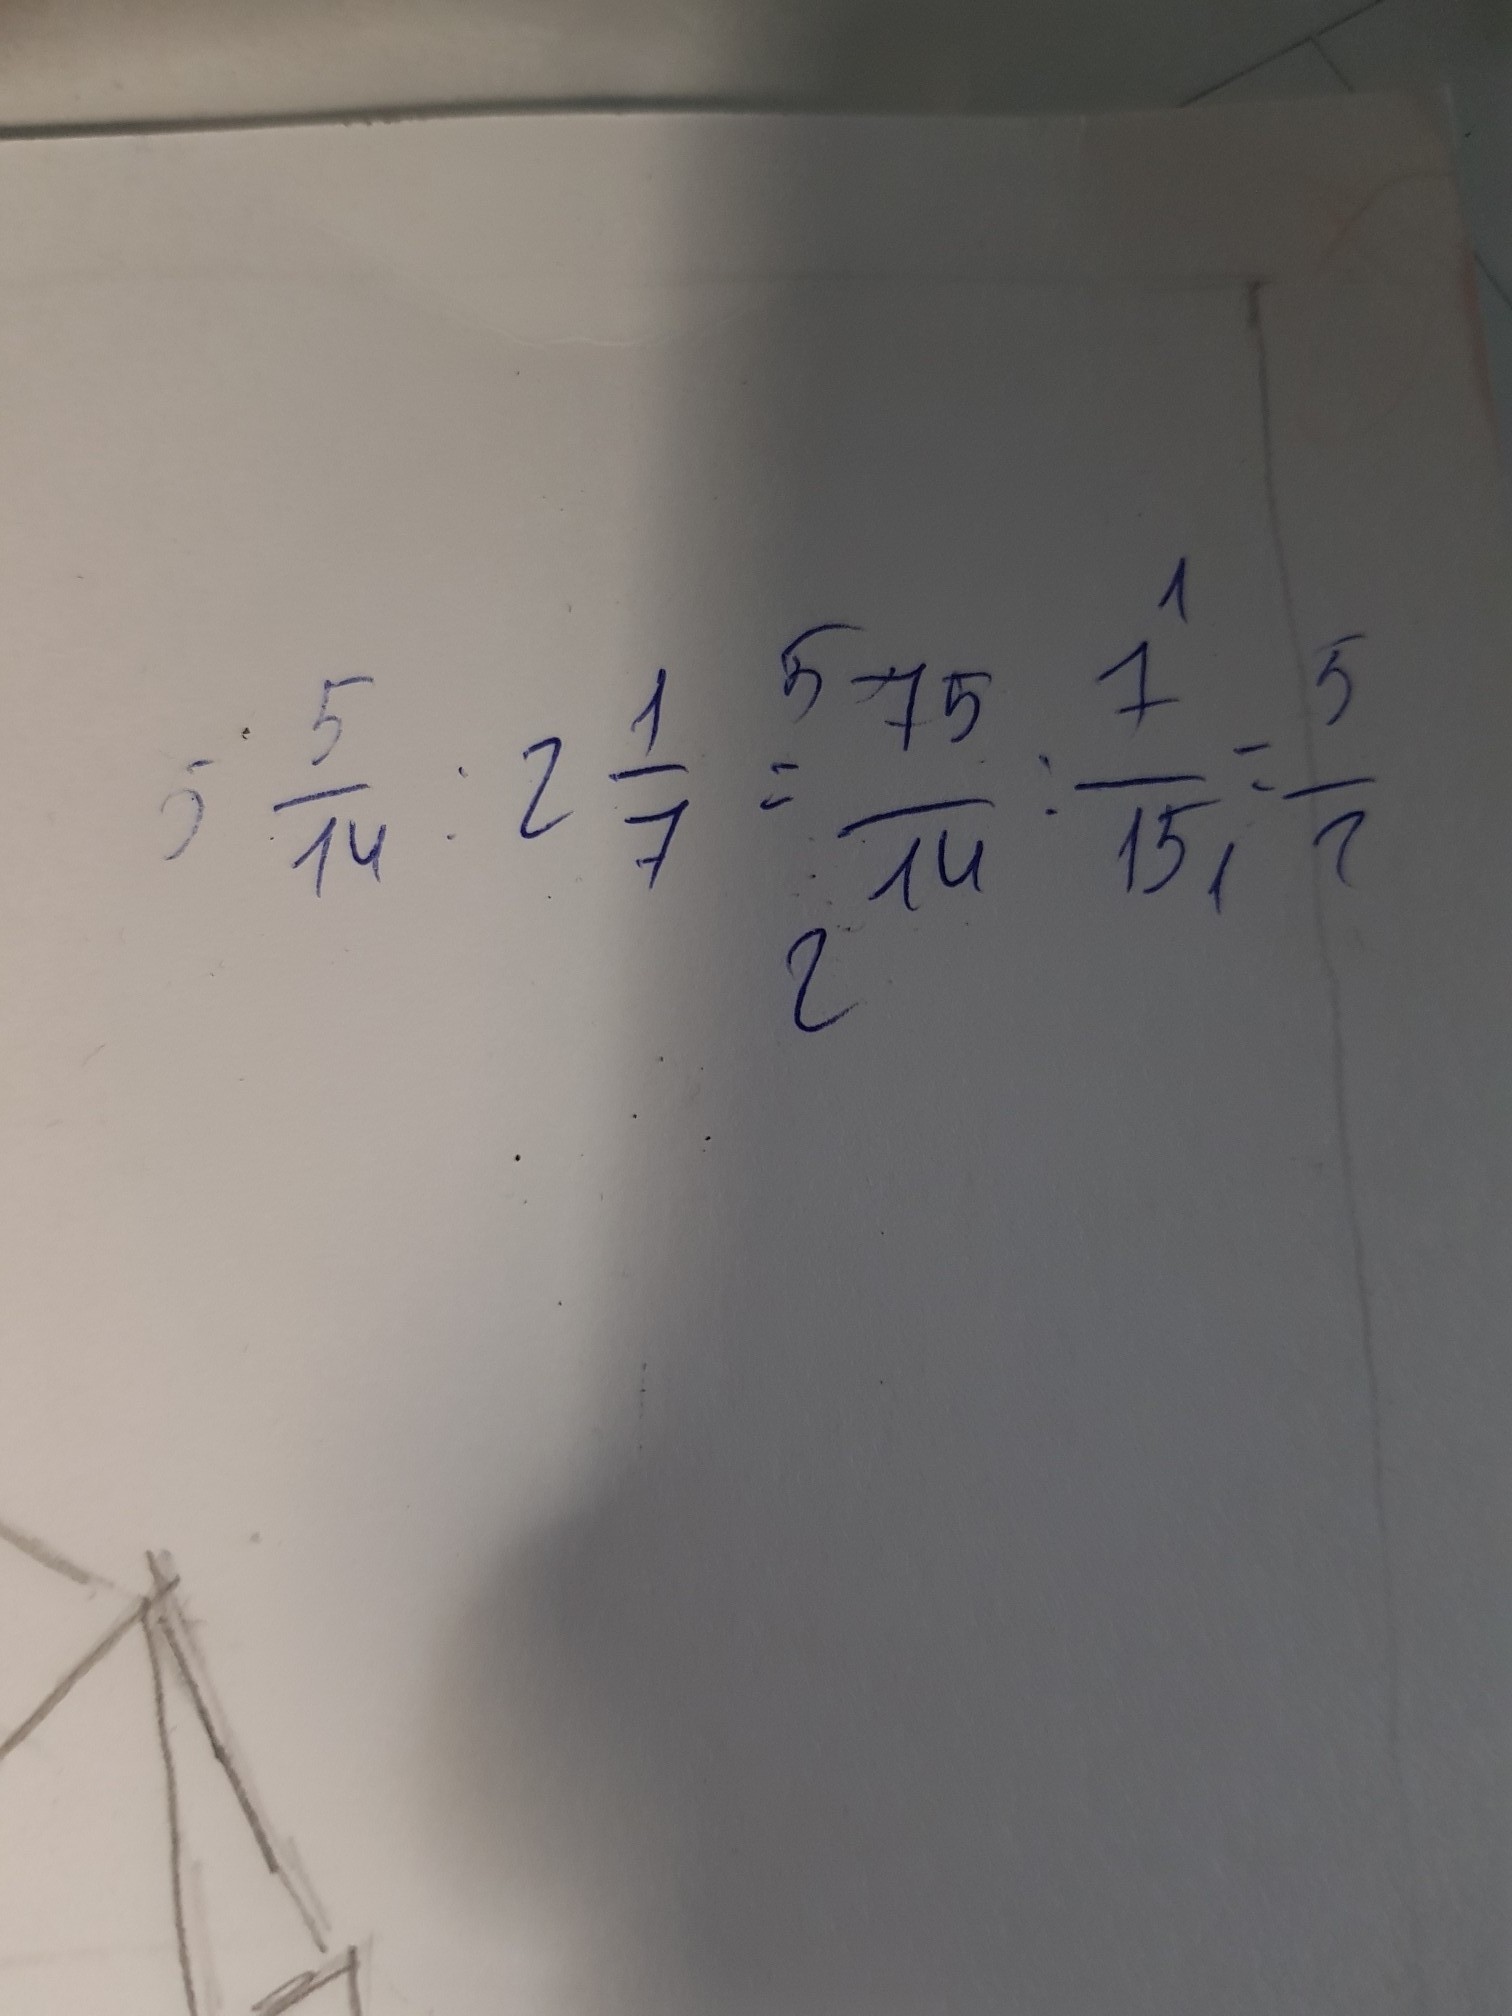 5 5/14 : 2 1/7 = 5 75/14 2 : 7 1/15 1 = 5/2